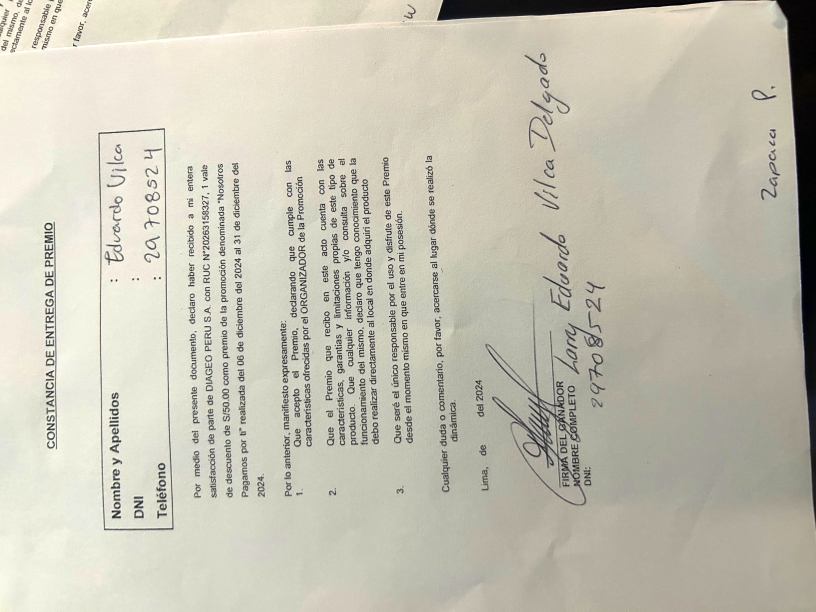 CONSTANCIA DE ENTREGA DE PREMIO
Nombre y Apellidos : Eduardo Vilca
DNI :
Teléfono : 29708524
Por medio del presente documento, declaro haber recibido a mi entera
satisfacción de parte de DIAGEO PERU S.A. con RUC N°20263158327, 1 vale
de descuento de S/50.00 como premio de la promoción denominada "Nosotros
Pagamos por ti" realizada del 06 de diciembre del 2024 al 31 de diciembre del
2024.
Por lo anterior, manifiesto expresamente:
1. Que acepto el Premio, declarando que cumple con las
características ofrecidas por el ORGANIZADOR de la Promoción
2. Que el Premio que recibo en este acto cuenta con las
características, garantías y limitaciones propias de este tipo de
producto. Que cualquier información y/o consulta sobre el
funcionamiento del mismo, declaro que tengo conocimiento que la
debo realizar directamente al local en donde adquirí el producto
3. Que seré el único responsable por el uso y disfrute de este Premio
desde el momento mismo en que entre en mi posesión.
Cualquier duda o comentario, por favor, acercarse al lugar dónde se realizó la
dinámica.
Lima, de del 2024
FIRMA DEL GANADOR
NOMBRE COMPLETO Larry Eduardo Vilca Delgado
DNI: 29708524
Zapaca P.